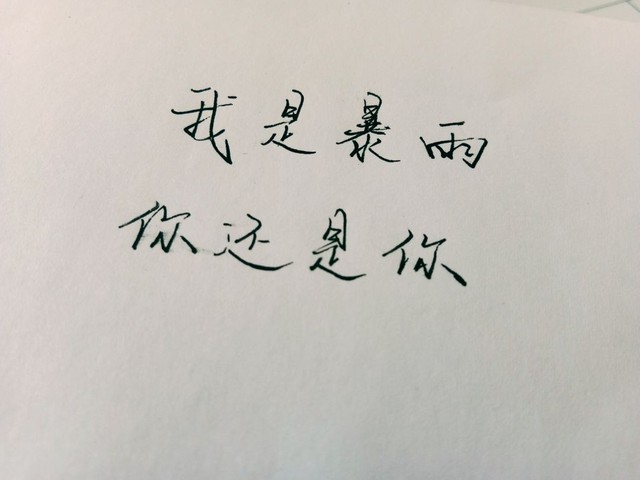 我是暴雨
你还是你